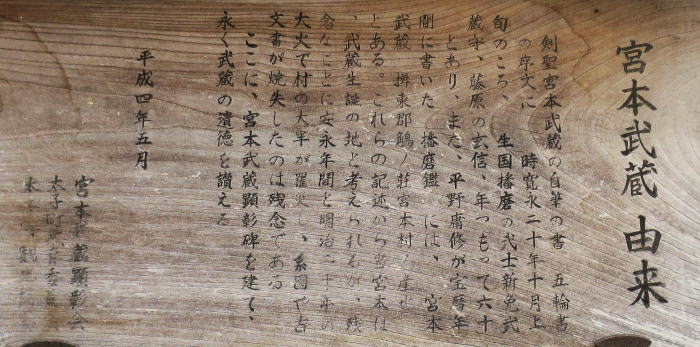 宮本武蔵 由来
剣聖宮本武蔵の自筆の書 五輪書
の序文に 時寛永二十年十月上
旬のころ、 生国播磨の武士新免武
蔵守、藤原の玄信、年つもって六十
とあり、また、平野庸修が宝暦年
間に書いた 播磨鑑 には、宮本
武蔵 揖東郡鵤ノ荘宮本村ノ産也
とある。これらの記述から考宮本は
、武蔵生誕の地と考えられるが、残
念なことに安永年間と明治二十年の
大火で村の大半が罹災し、系図や古
文書が焼失したのは残念である
ここに、宮本武蔵顕彰碑を建て、
永く武蔵の遺徳を讃える
平成四年五月
宮本武蔵顕彰会
太子町教育委員会
太子町観光協会